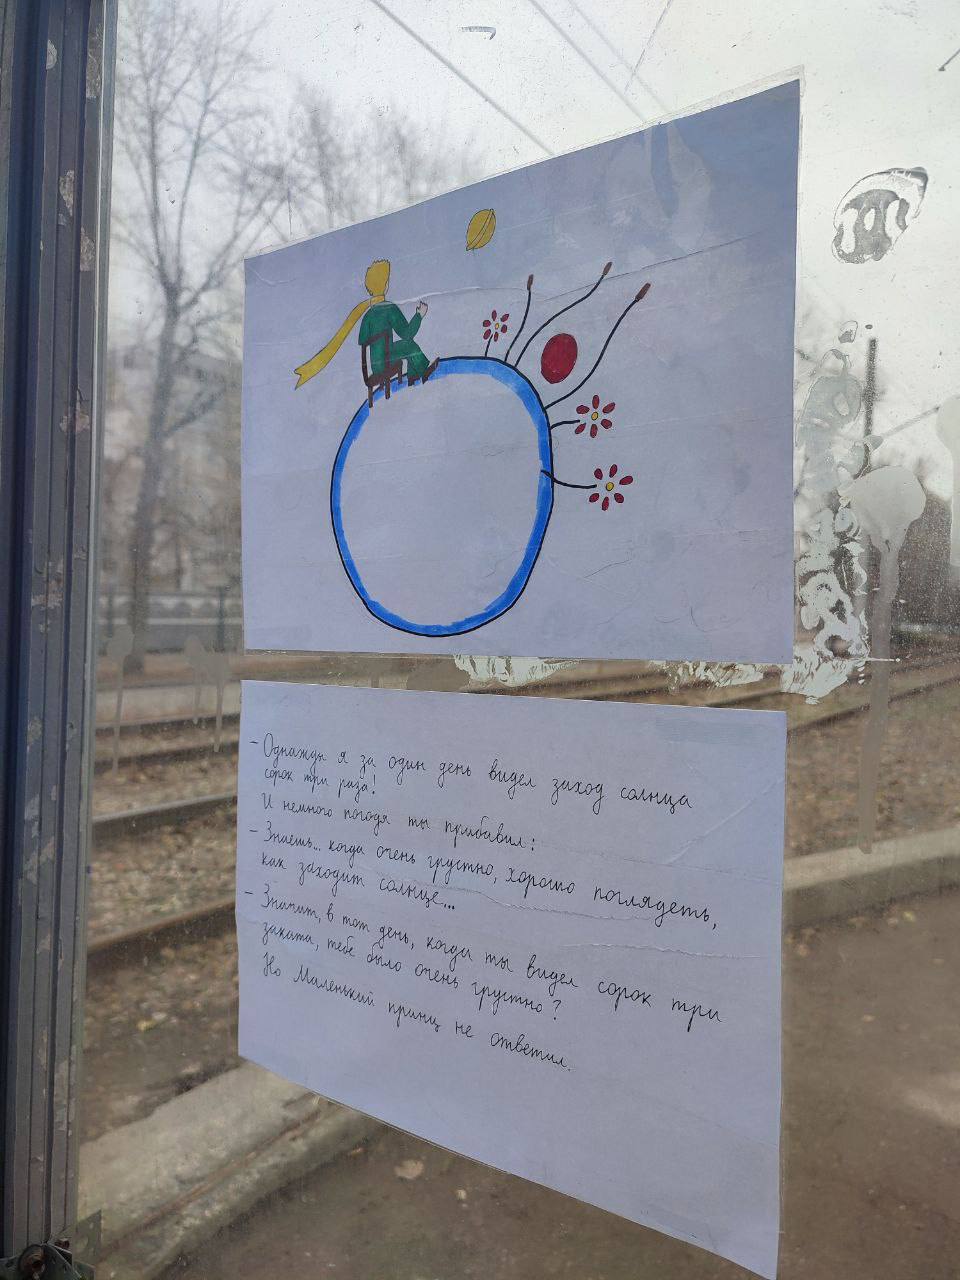 - Однажды я за один день видел заход солнца
сорок три раза!
И немного погодя ты прибавил:
- Знаешь... когда очень грустно, хорошо поглядеть,
как заходит солнце...
- Значит, в тот день, когда ты видел сорок три
заката, тебе было очень грустно?
Но Маленький принц не ответил.